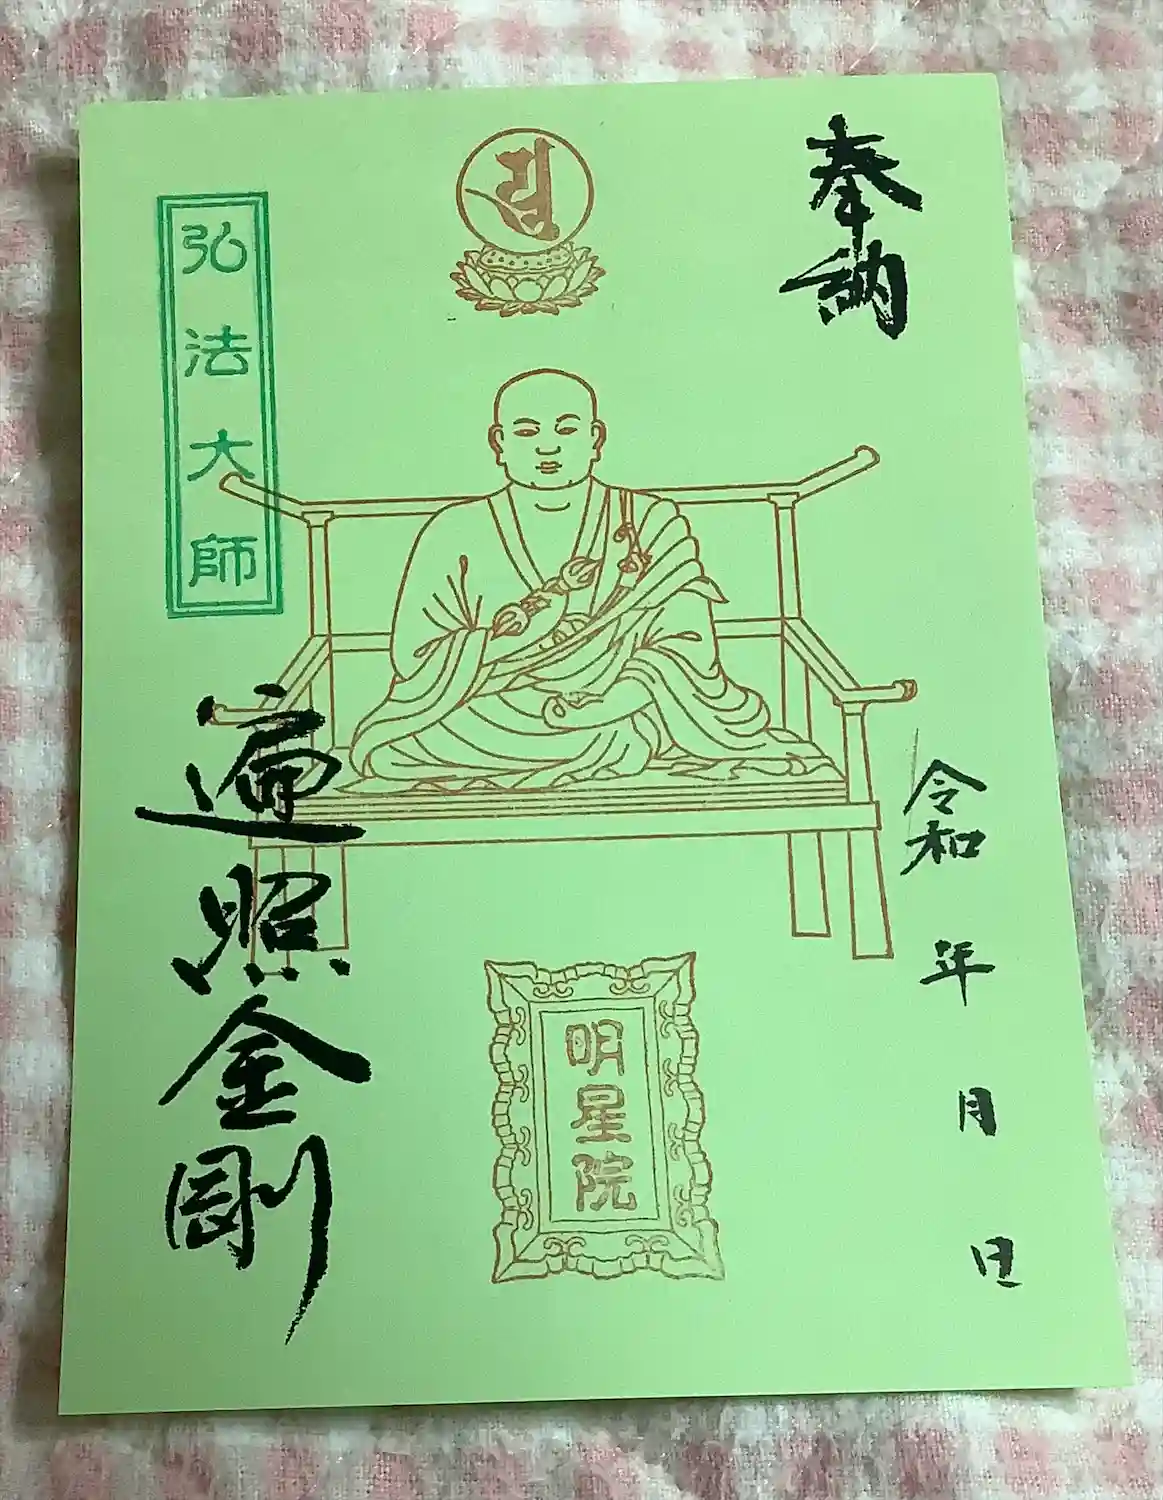 奉納
令和 年 月 日
弘法大師
遍照金剛
明星院